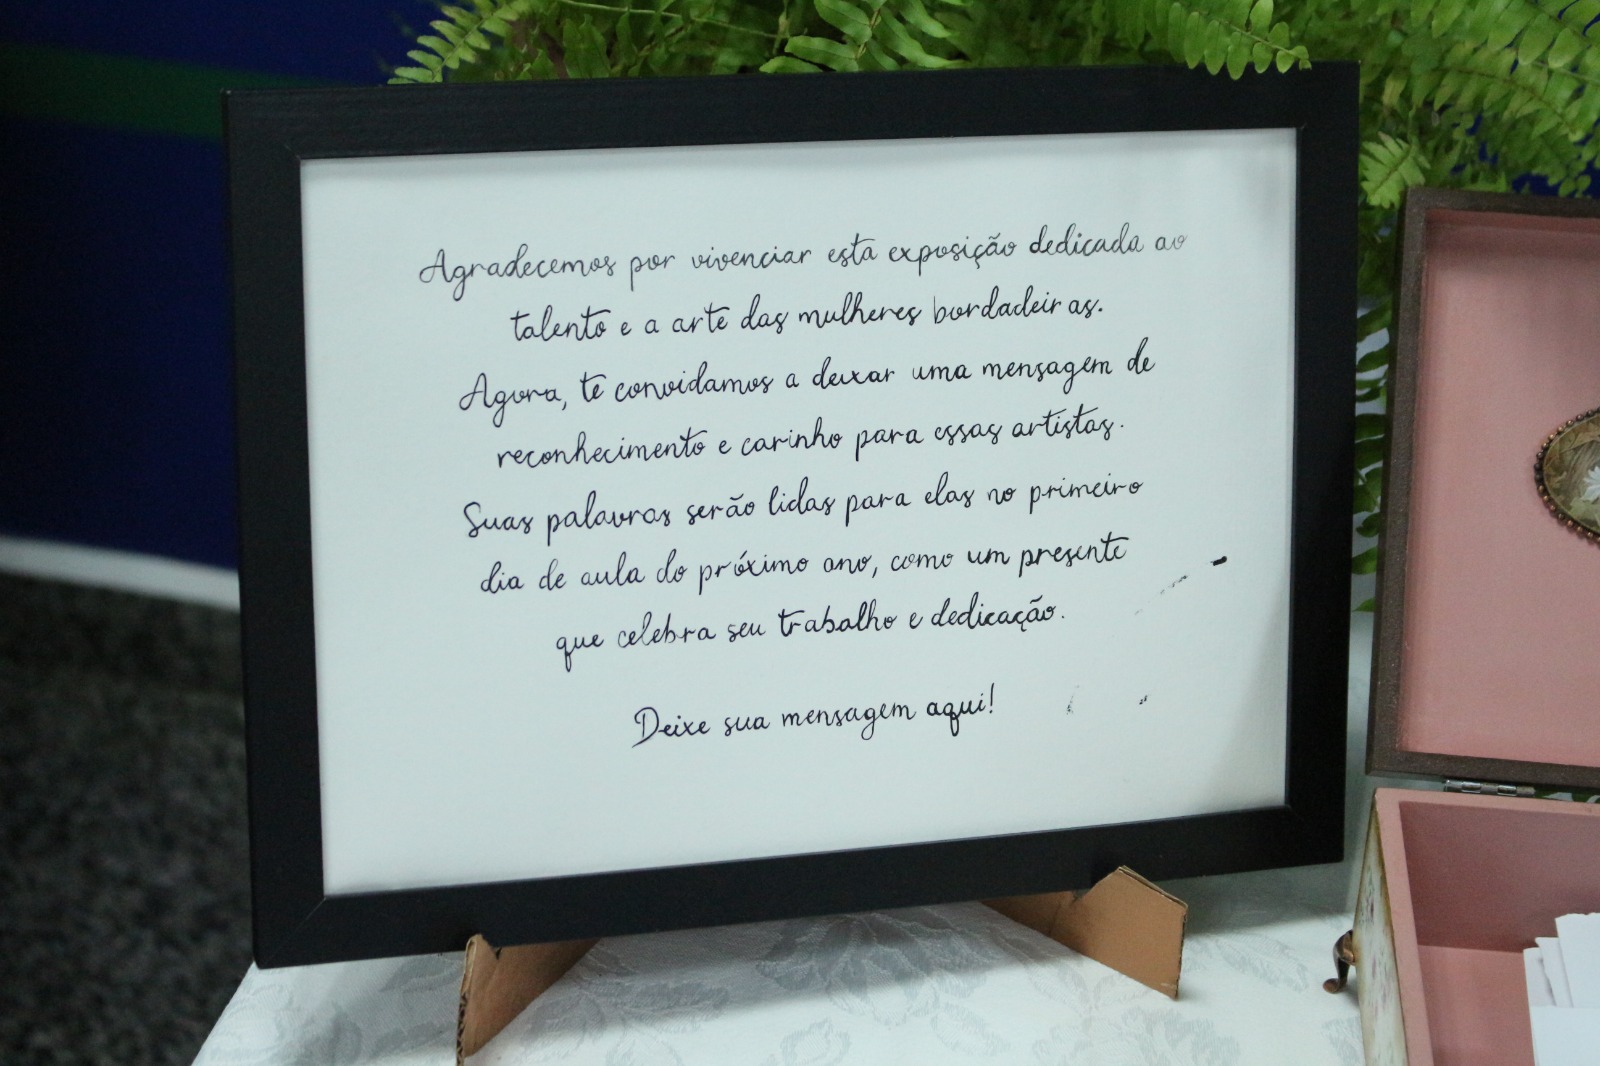 Agradecemos por vivenciar esta exposição dedicada ao
talento e a arte das mulheres bordadeiras.
Agora, te convidamos a deixar uma mensagem de
reconhecimento e carinho para essas artistas.
Suas palavras serão lidas para elas no primeiro
dia de aula do próximo ano, como um presente
que celebra seu trabalho e dedicação.
Deixe sua mensagem aqui!